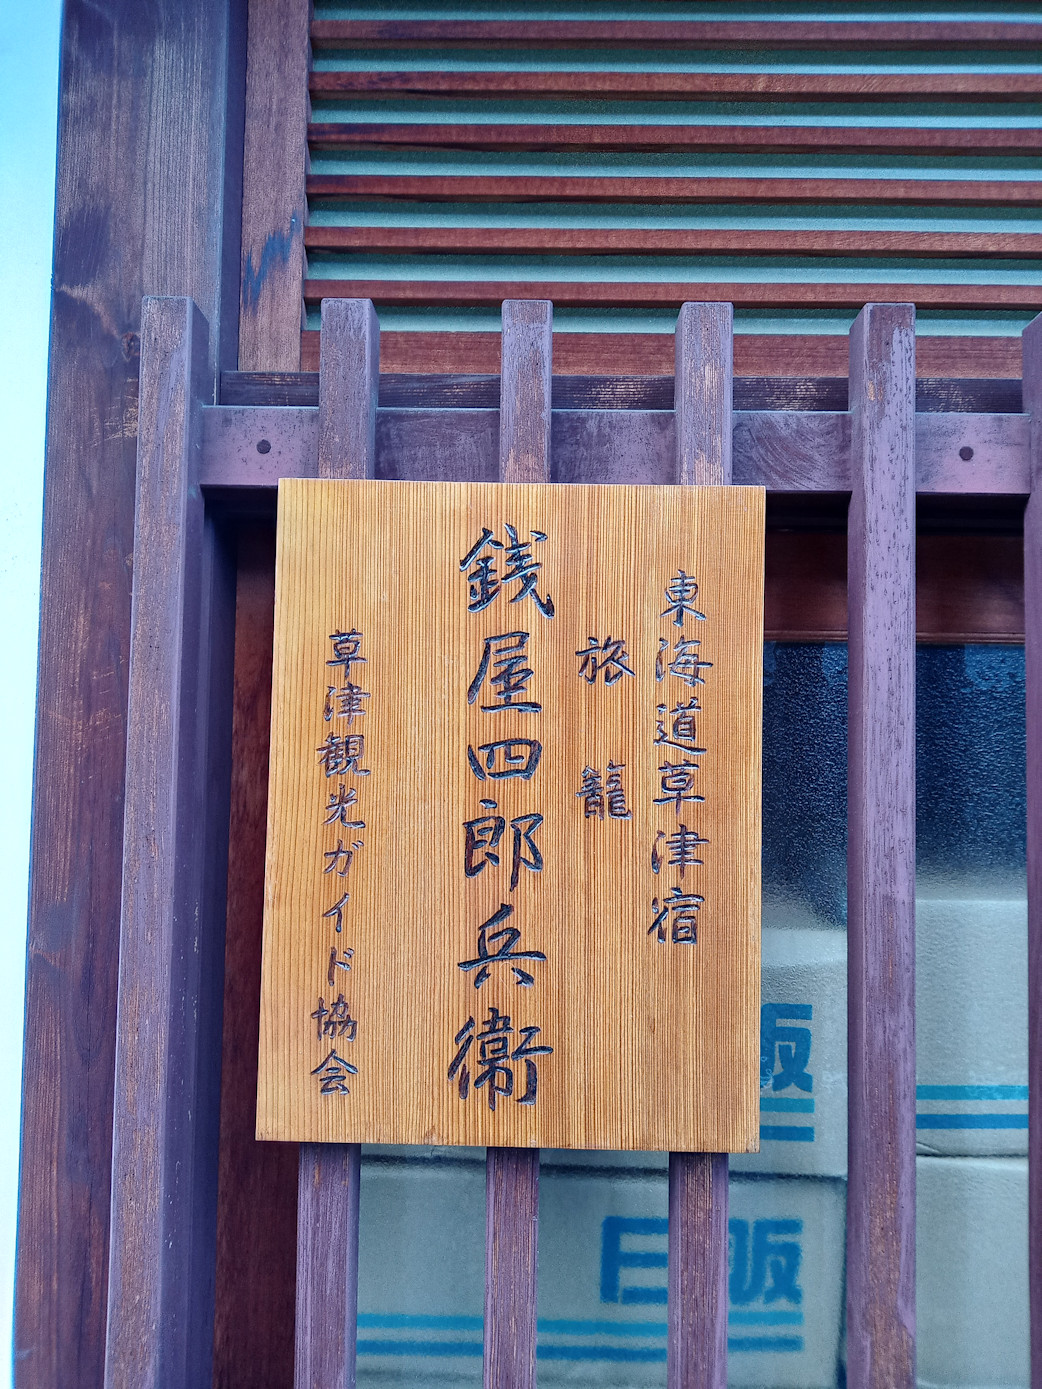 東海道草津宿
旅籠
銭屋四郎兵衛
草津観光ガイド協会
販
日販